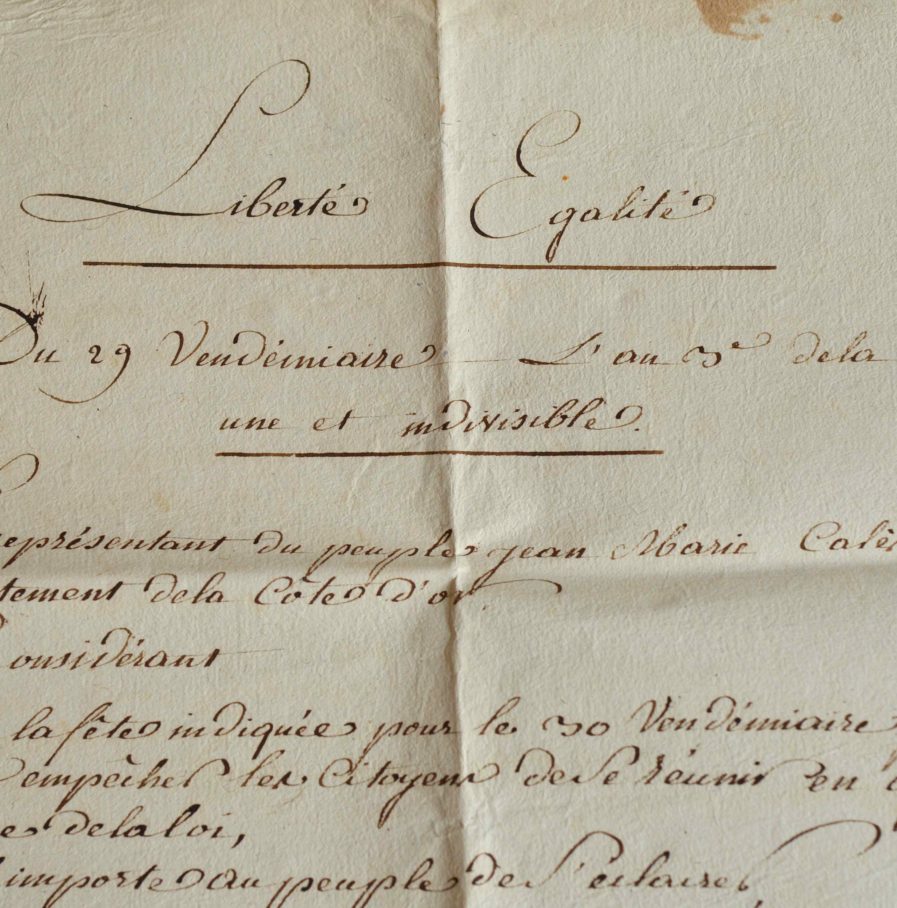 Liberté Egalité
Du 29 Vendémiaire L'an 3e dela
une et indivisible.
représentant du peuple jean Marie Calès
tement dela Côte d'or
Considérant
la fête indiquée pour le 30 Vendémiaire
empêcher les Citoyens de se réunir en
e dela loi,
importe au peuple de s'eclairer